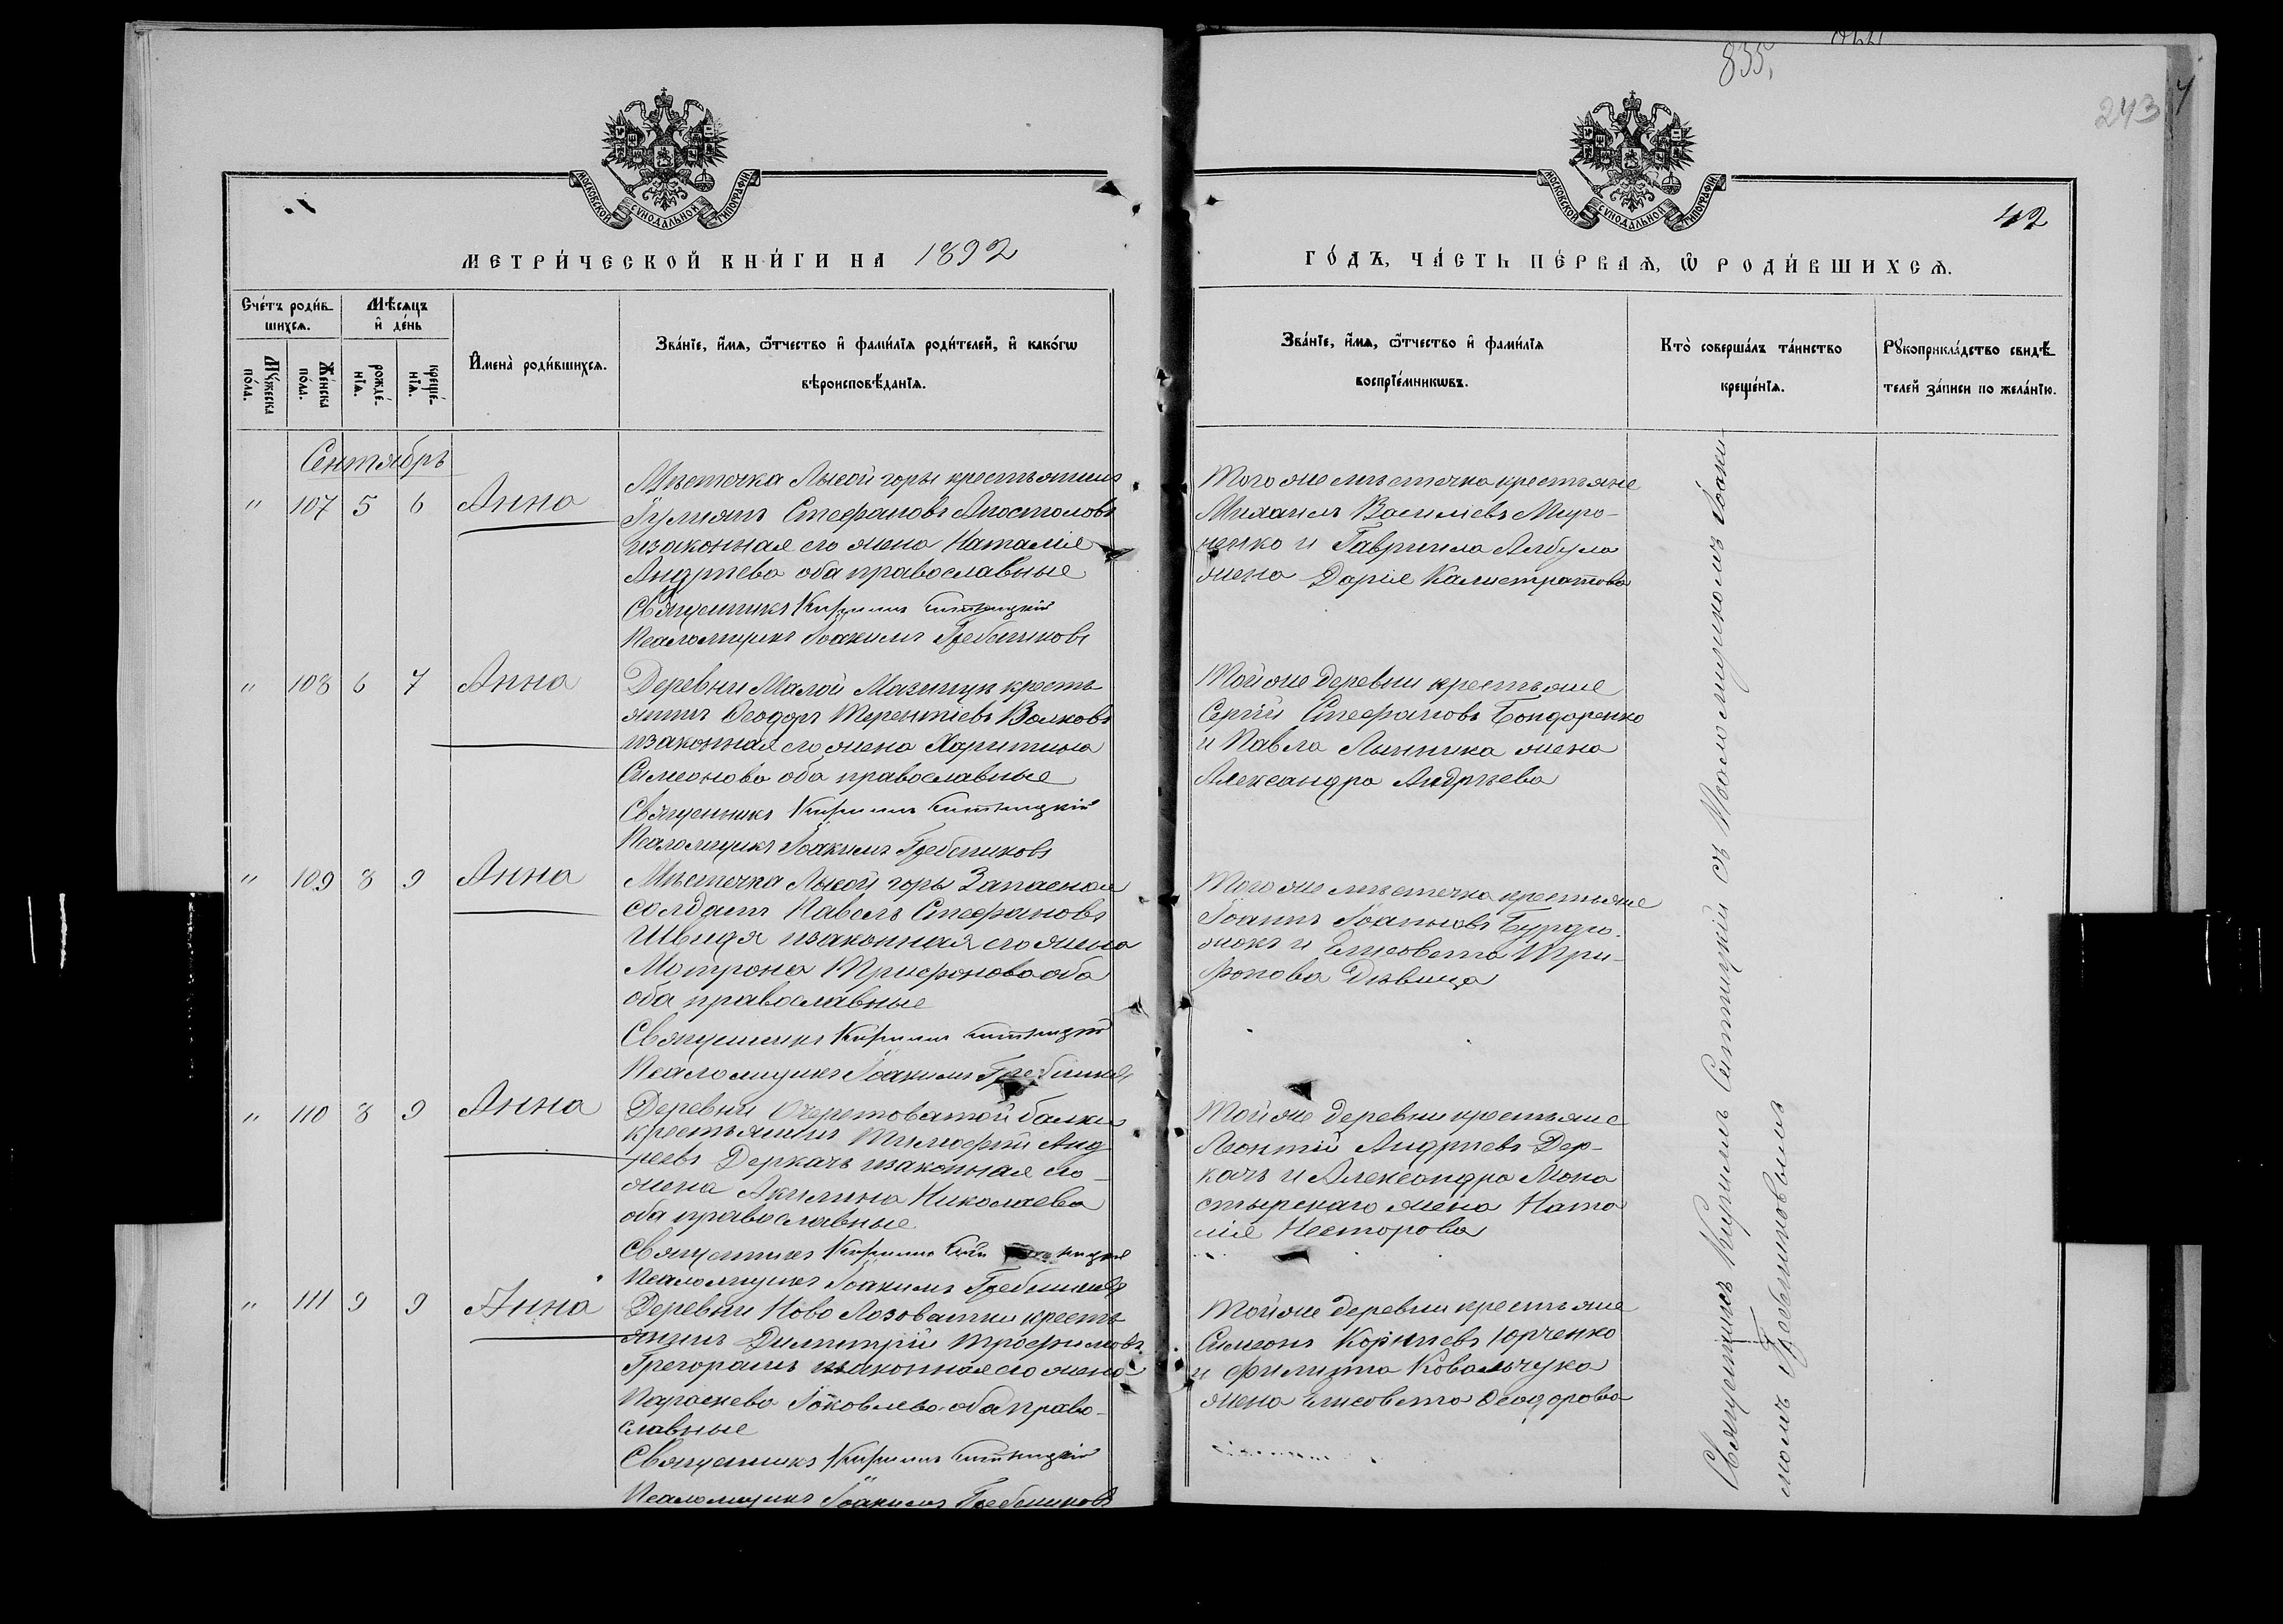 855
243
42
МОСКОВСКОЙ СѴНОДАЛЬНОЙ ТИПОГРАФІИ
МОСКОВСКОЙ СѴНОДАЛЬНОЙ ТИПОГРАФІИ
МЕТРИ́ЧЕСКОЙ КНИ́ГИ НА 1892
Сче́тъ роди́в-
шихсѧ.
Мѣ́сѧцъ
и҆ де́нь
Мꙋ́жеска
по́ла.
Же́нска
по́ла.
рожде́-
нїѧ.
креще́-
нїѧ.
И҆мена̀ роди́вшихсѧ.
Зва́нїе, и҆́мѧ, ѿ́чество и҆ фами́лїѧ роди́телей, и҆ како́гѡ
вѣроисповѣ́данїѧ.
Сентябрь
" 107 5 6 Анна
Мѣстечка Лысой горы крестьянинъ
Іуліянъ Стефановъ Апостоловъ
изаконная его жена Наталія
Андрѣева оба православные
Священникъ Кирилъ
Псаломщикъ Іоакимъ Гребенниковъ
" 108 6 7 Анна
Деревни Малой Мазницы кресть
янинъ Ѳеодоръ Терентіевъ Волковъ
изаконная его жена Харитина
Симеонова оба православные
Священникъ Кирилъ
Псаломщикъ Іоакимъ Гребенниковъ
" 109 8 9 Анна
Мѣстечка Лысой горы Запасной
солдатъ Павелъ Стефановъ
Швидя изаконная его жена
Матрона Трифонова оба
оба православные
Священникъ Кирилъ
Псаломщикъ Іоакимъ Гребенниковъ
" 110 8 9 Анна
Деревни Очеретоватой балки
крестьянинъ Тимофій Анд
реевъ Деркачъ изаконная его
жена Акилина Николаева
оба православные
Священникъ Кирилъ
Псаломщикъ Іоакимъ Гребенниковъ
" 111 9 9 Анна
Деревни Ново Лозоватки кресть
янинъ Димитрій Трофимовъ
Грегорашъ изаконная его жена
Параскева Іаковлева оба право-
славные
Священникъ Кирилъ
Псаломщикъ Іоакимъ Гребенниковъ
ГО́ДЪ, ЧА́СТЬ ПЕ́РВАѦ, Ѡ҆ РОДИ́ВШИХСѦ.
Зва́нїе, и҆́мѧ, ѿ́чество и҆ фами́лїѧ
воспрїе́мникѡвъ.
Кто̀ соверша́лъ та́инство
креще́нїѧ.
Рꙋкоприкла́дство свидѣ́-
телей за́писи по жела́нїю.
Того же мѣстечка крестьяне
Михаилъ Василіевъ Миро-
ненко и Гавріила Албула
жена Дарія Калистратова
Той же деревни крестьяне
Сергій Стефановъ Бондаренко
и Павла Линника жена
Александра Андрѣева
Того же мѣстечка крестьяне
Іоаннъ Іоанновъ Бурдю-
жокъ и Елисавета Три-
фонова Дѣвица
Той же деревни крестьяне
Леонтій Андріевъ Дер-
качъ и Александра Мона
стырскаго жена Ната
лія Несторова
Той же деревни крестьяне
Симеонъ Корніевъ Юрченко
и Филиппа Ковальчука
жена Елисавета Ѳеодорова
Священникъ Кирилъ Ситницкій съ Псаломщикомъ Іоаки-
момъ Гребенниковымъ